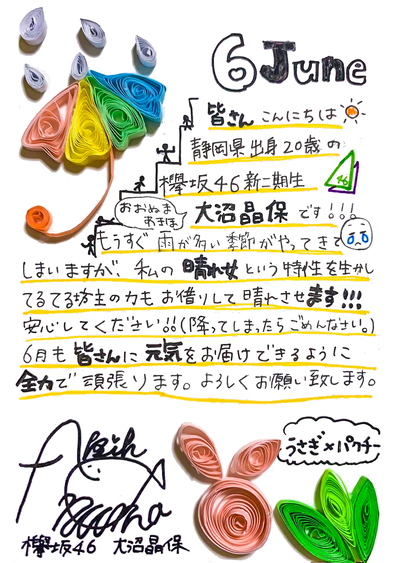 6 June
皆さん こんにちは
静岡県出身20歳の
欅坂46新二期生
46
おおぬま
あきほ
大沼晶保です!!!
もうすぐ雨が多い季節がやってきて
しまいますが、私の晴れ女という特性を生かし
てるてる坊主の力もお借りして晴れさせます!!!
安心してください!!(降ってしまったらごめんなさい。)
6月も皆さんに元気をお届けできるように
全力で頑張ります。よろしくお願い致します。
うさぎ×パクチー
欅坂46 大沼晶保